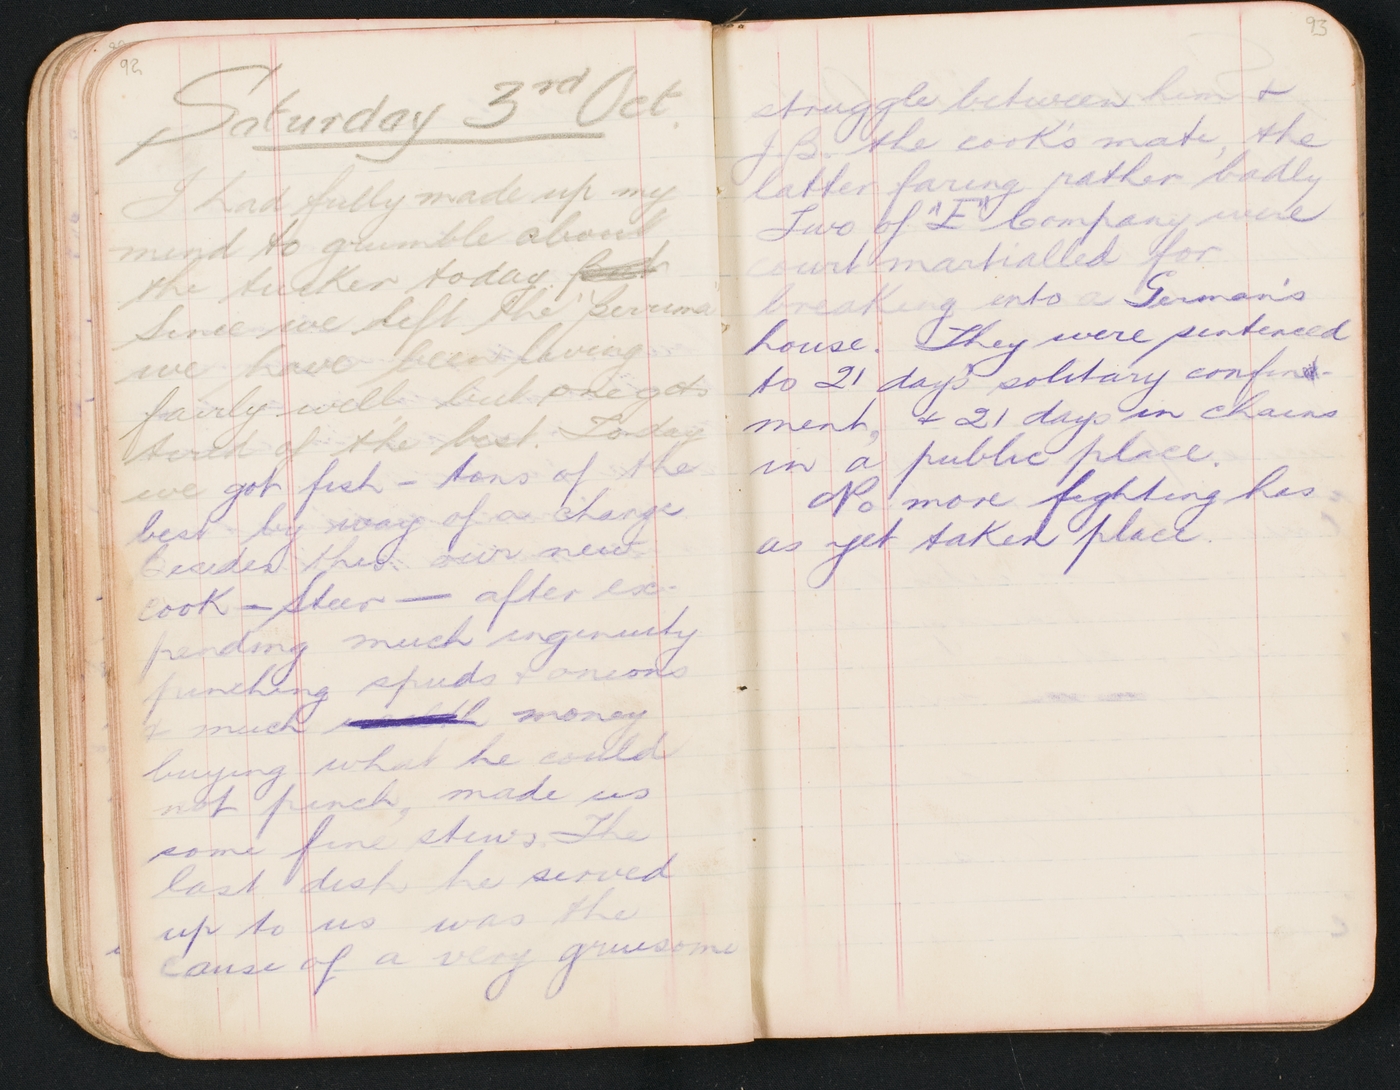 92
Saturday 3rd Oct.
I had fully made up my
mind to grumble about
the tucker today
Since we left the "Berrima"
we have been living
fairly well but one gets
tired of the best. Today
we got fish - tons of the
best by way of a change
besides this our new
cook - Steer - after ex-
pending much ingenuity
pinching spuds & onions
& much money
buying what he could
not pinch, made us
some fine stews. The
last dish he served
up to us was the
cause of a very gruesome
93
struggle between him &
J.B. the cook's mate, the
latter faring rather badly
Two of "E" Company were
court martialled for
breaking into a German's
house. They were sentenced
to 21 days solitary confine-
ment, & 21 days in chains
in a public place.
No more fighting has
as yet taken place.